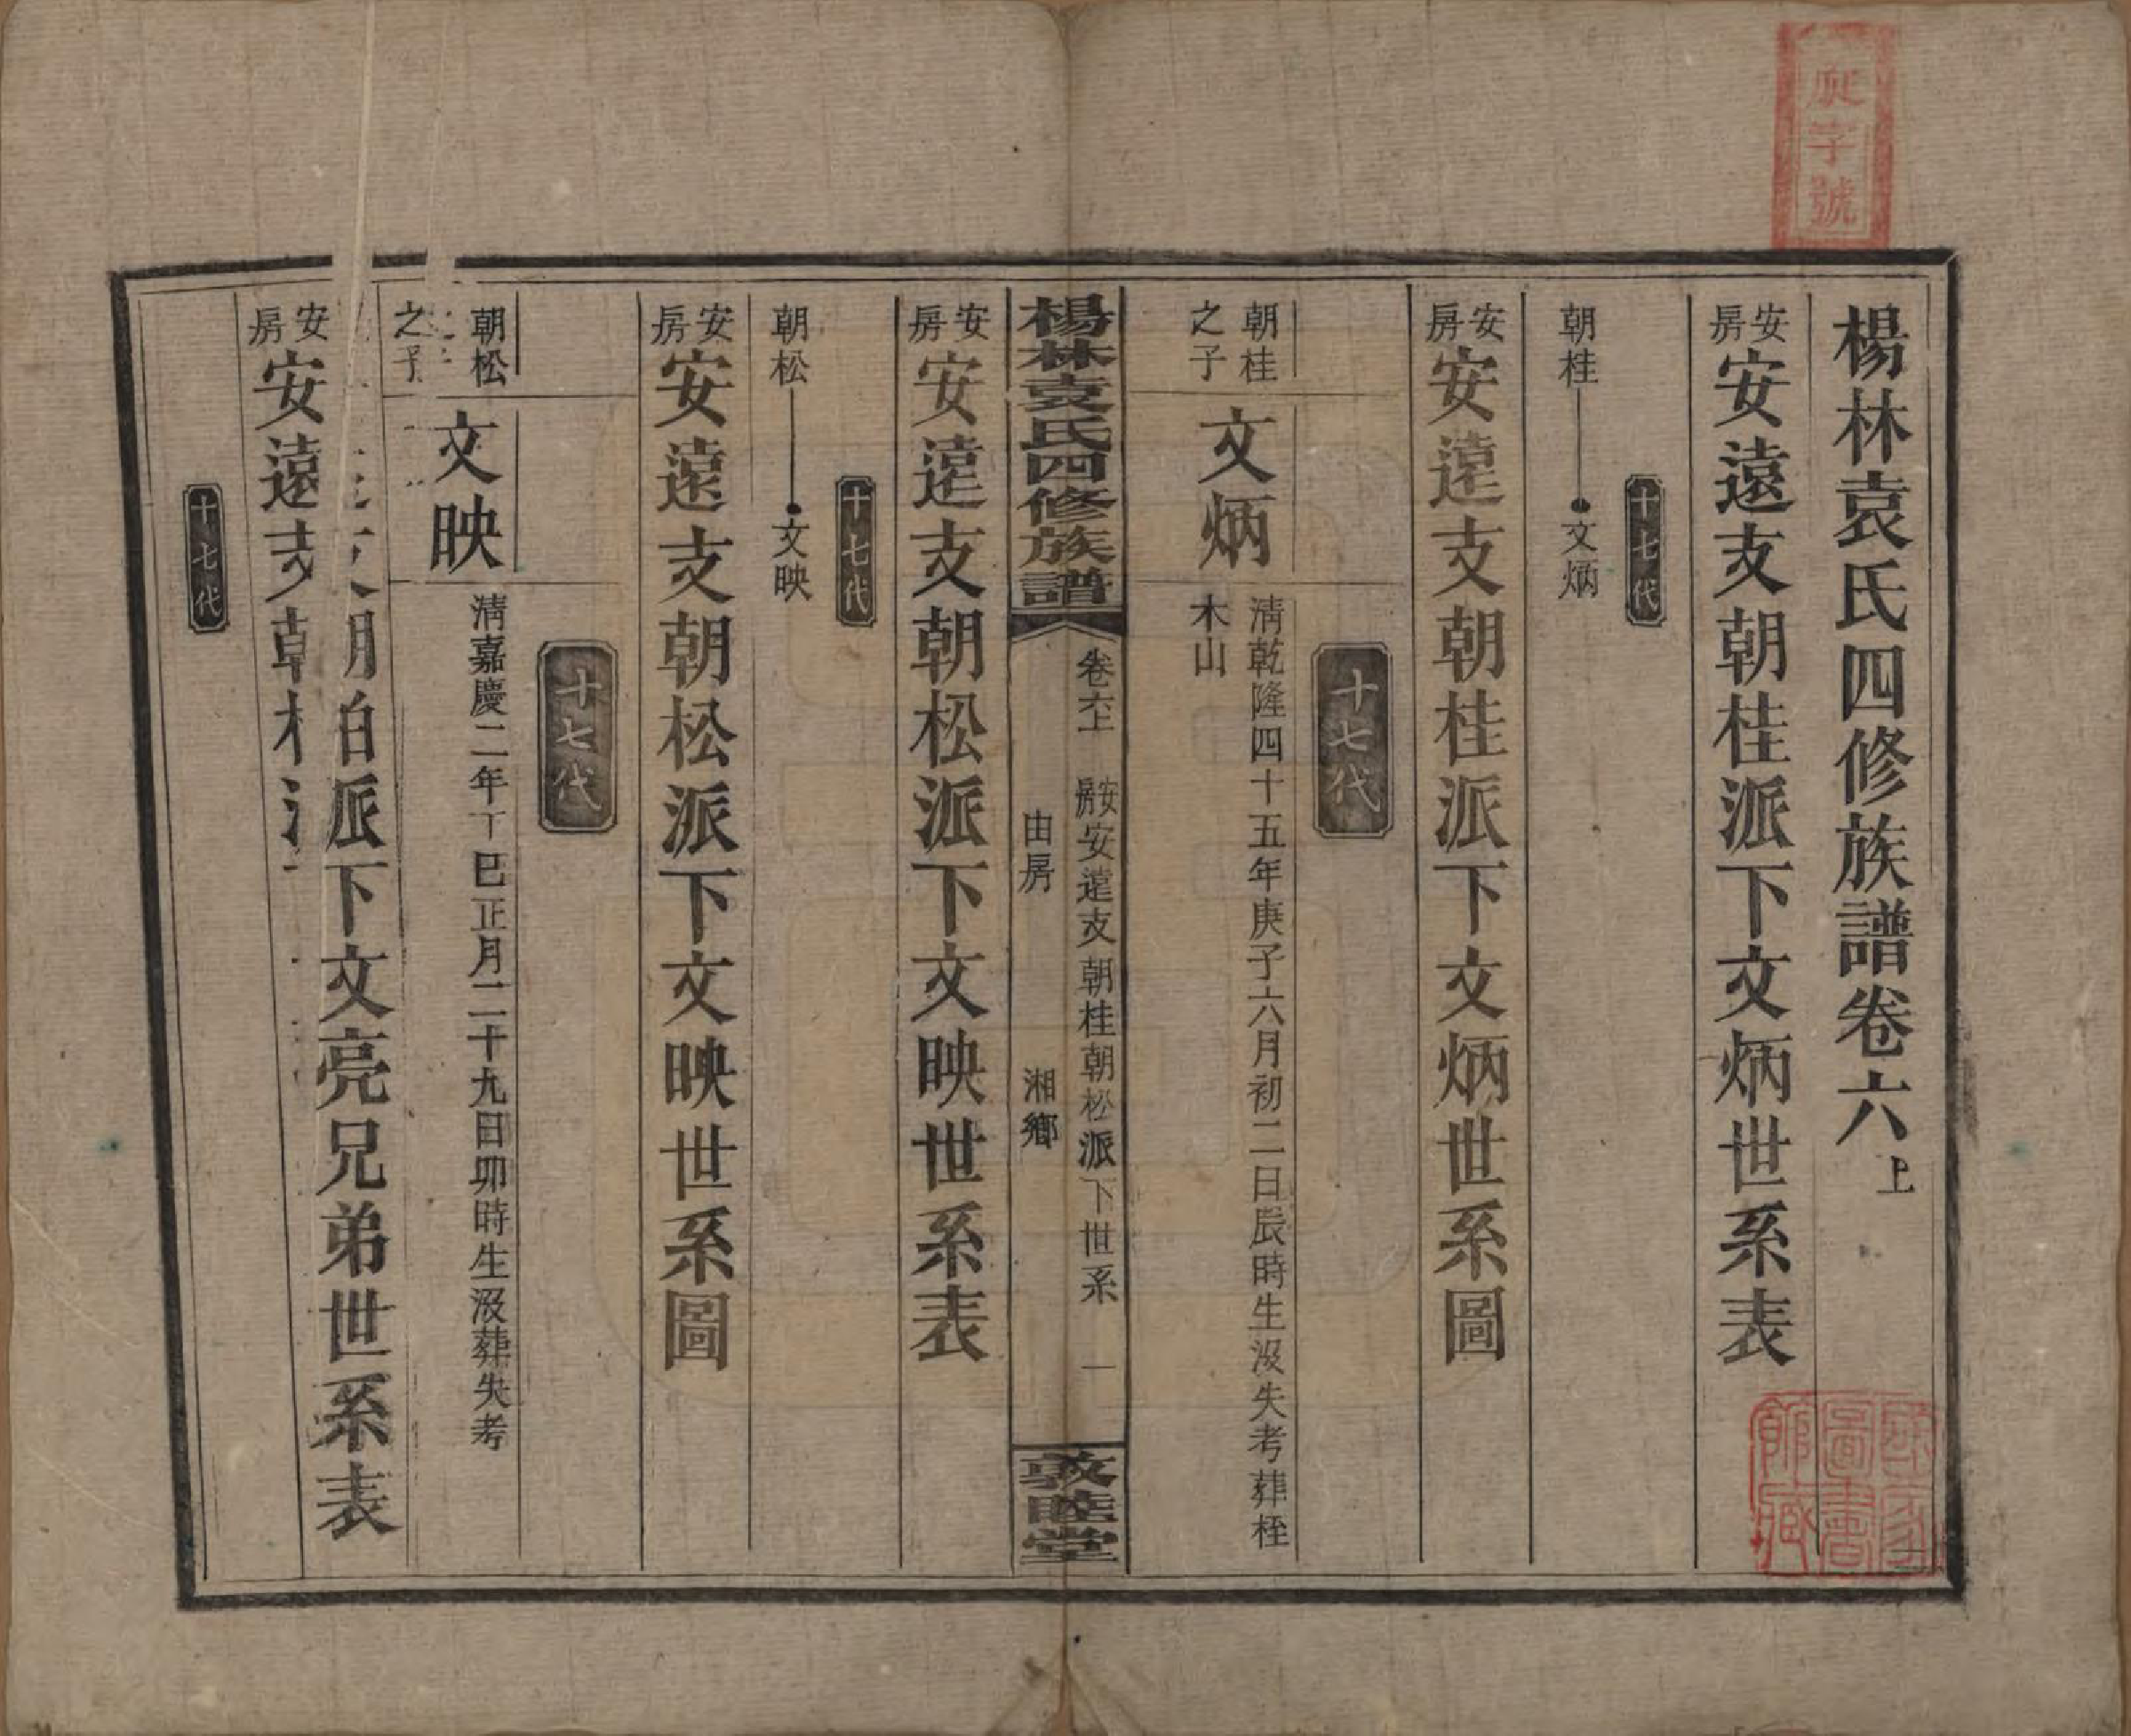 字號
楊林袁氏四修族譜卷六上
安房安遠支朝桂派下文炳世系表
十七代
朝桂 文炳
安房安遠支朝桂派下文炳世系圖
十七代
朝桂之子
文炳
清乾隆四十五年庚子六月初二日辰時生沒失考葬桎
木山
楊林袁氏四修族譜
卷六上 安房安遠支朝桂朝松派下世系 一
由房 湘鄉
敦睦堂
安房安遠支朝松派下文映世系表
十七代
朝松 文映
安房安遠支朝松派下文映世系圖
十七代
朝松之子
文映
清嘉慶二年丁巳正月二十九日卯時生沒葬失考
派下文亮兄弟世系表
安房安遠支朝
十七代
國家圖書館藏